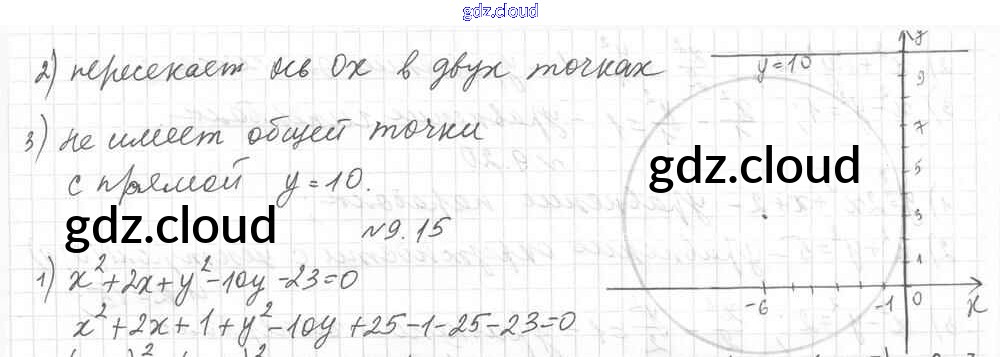 gdz.cloud
2) пересекает ось Ox в двух точках
3) не имеет общей точки
с прямой y=10.
gdz.cloud
№9.15
1) x²+2x+y²-10y-23=0
x²+2x+1+y²-10y+25-1-25-23=0
y
y=10
9
7
5
gdz.cloud
3
1
-6
-1
0
x